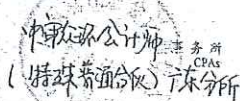 中审众环会计师事务所
CPAs
(特殊普通合伙)广东分所